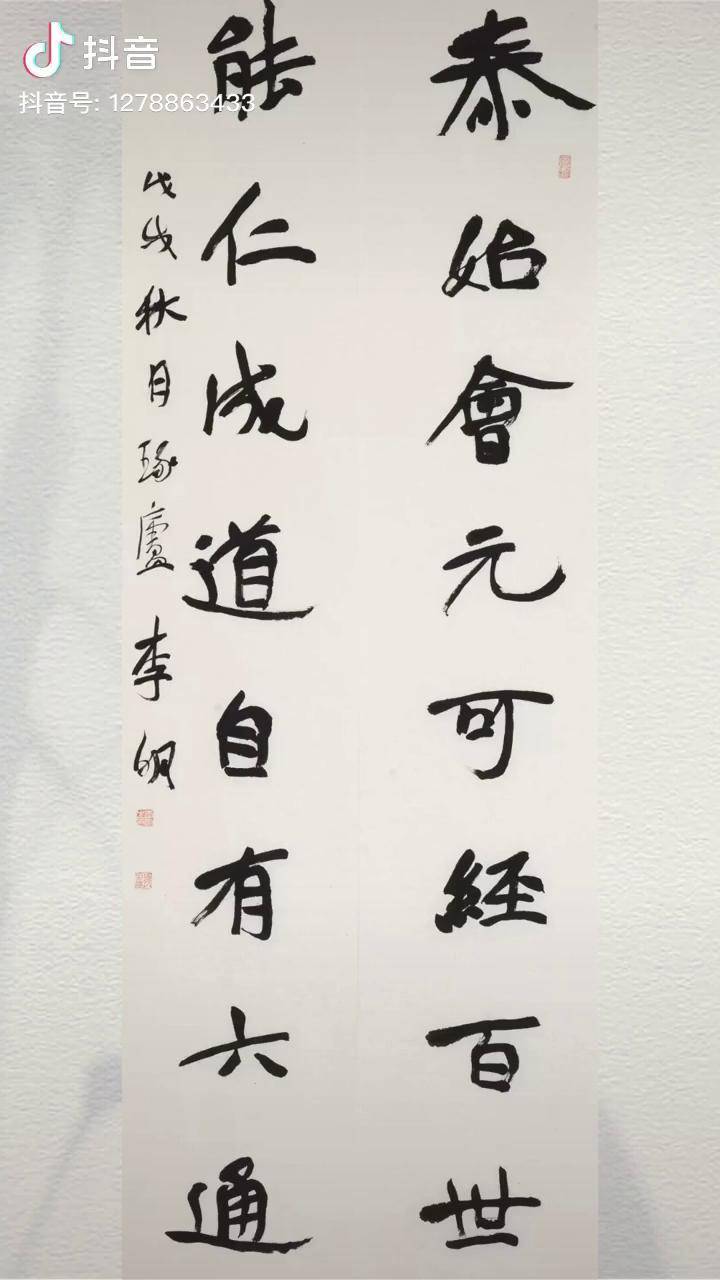 抖音
抖音号: 1278863433
泰始會元可經百世
能仁成道自有六通
戊戌秋月琢廬李明